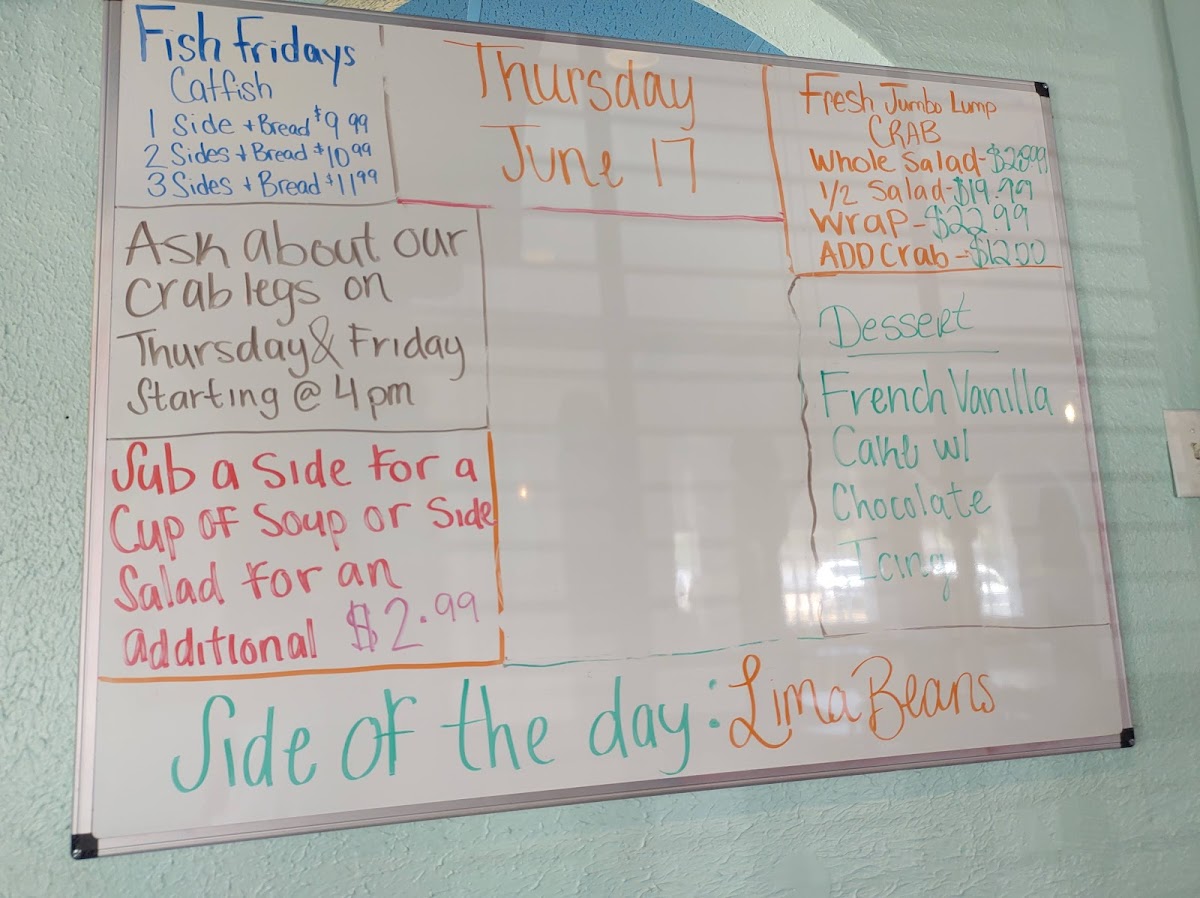 Fish Fridays
Catfish
1 Side + Bread $9 99
2 Sides + Bread $10 99
3 Sides + Bread $11 99
Thursday
June 17
Fresh Jumbo Lump
CRAB
Whole Salad-$28.99
1/2 Salad-$19.99
Wrap-$22.99
ADD Crab-$12.00
Ask about our
Crab legs on
Thursday & Friday
Starting @ 4 pm
Dessert
French Vanilla
Cake w/
Chocolate
Icing
Sub a Side for a
Cup of Soup or Side
Salad for an
additional $2.99
Side of the day: Lima Beans